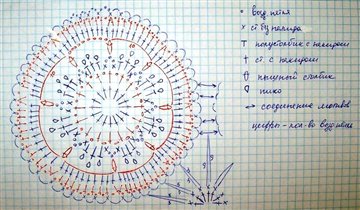 ° возд. петля
x ст. без накида
т полустолбик с накидом
† ст. с накидом
пышный столбик
пико
↔ соединение мотивов
цифры - кол-во возд. петель